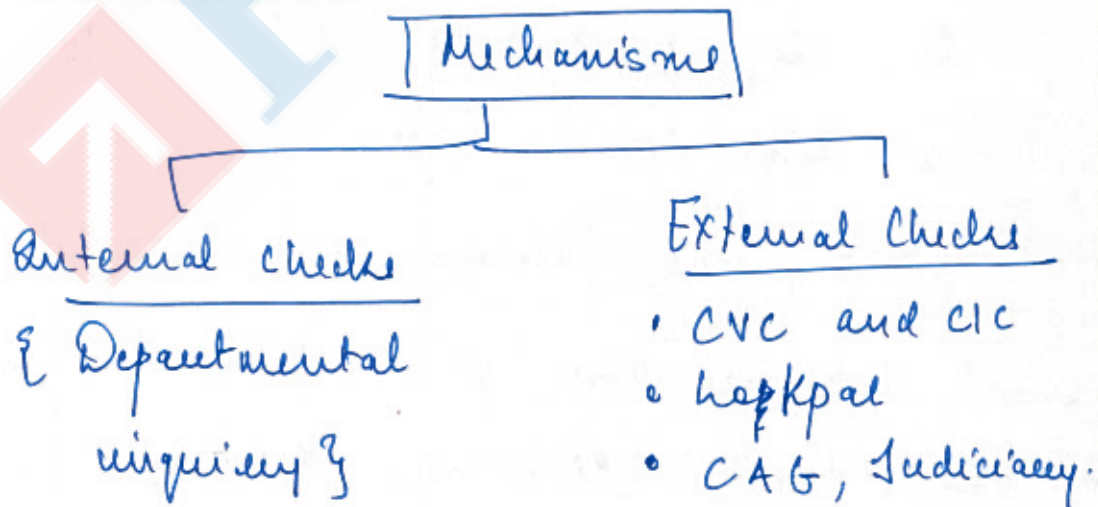 Mechanisms
Internal checks
{ Departmental
inquiry }
External Checks
• CVC and CIC
• Lokpal
• CAG, Judiciary.